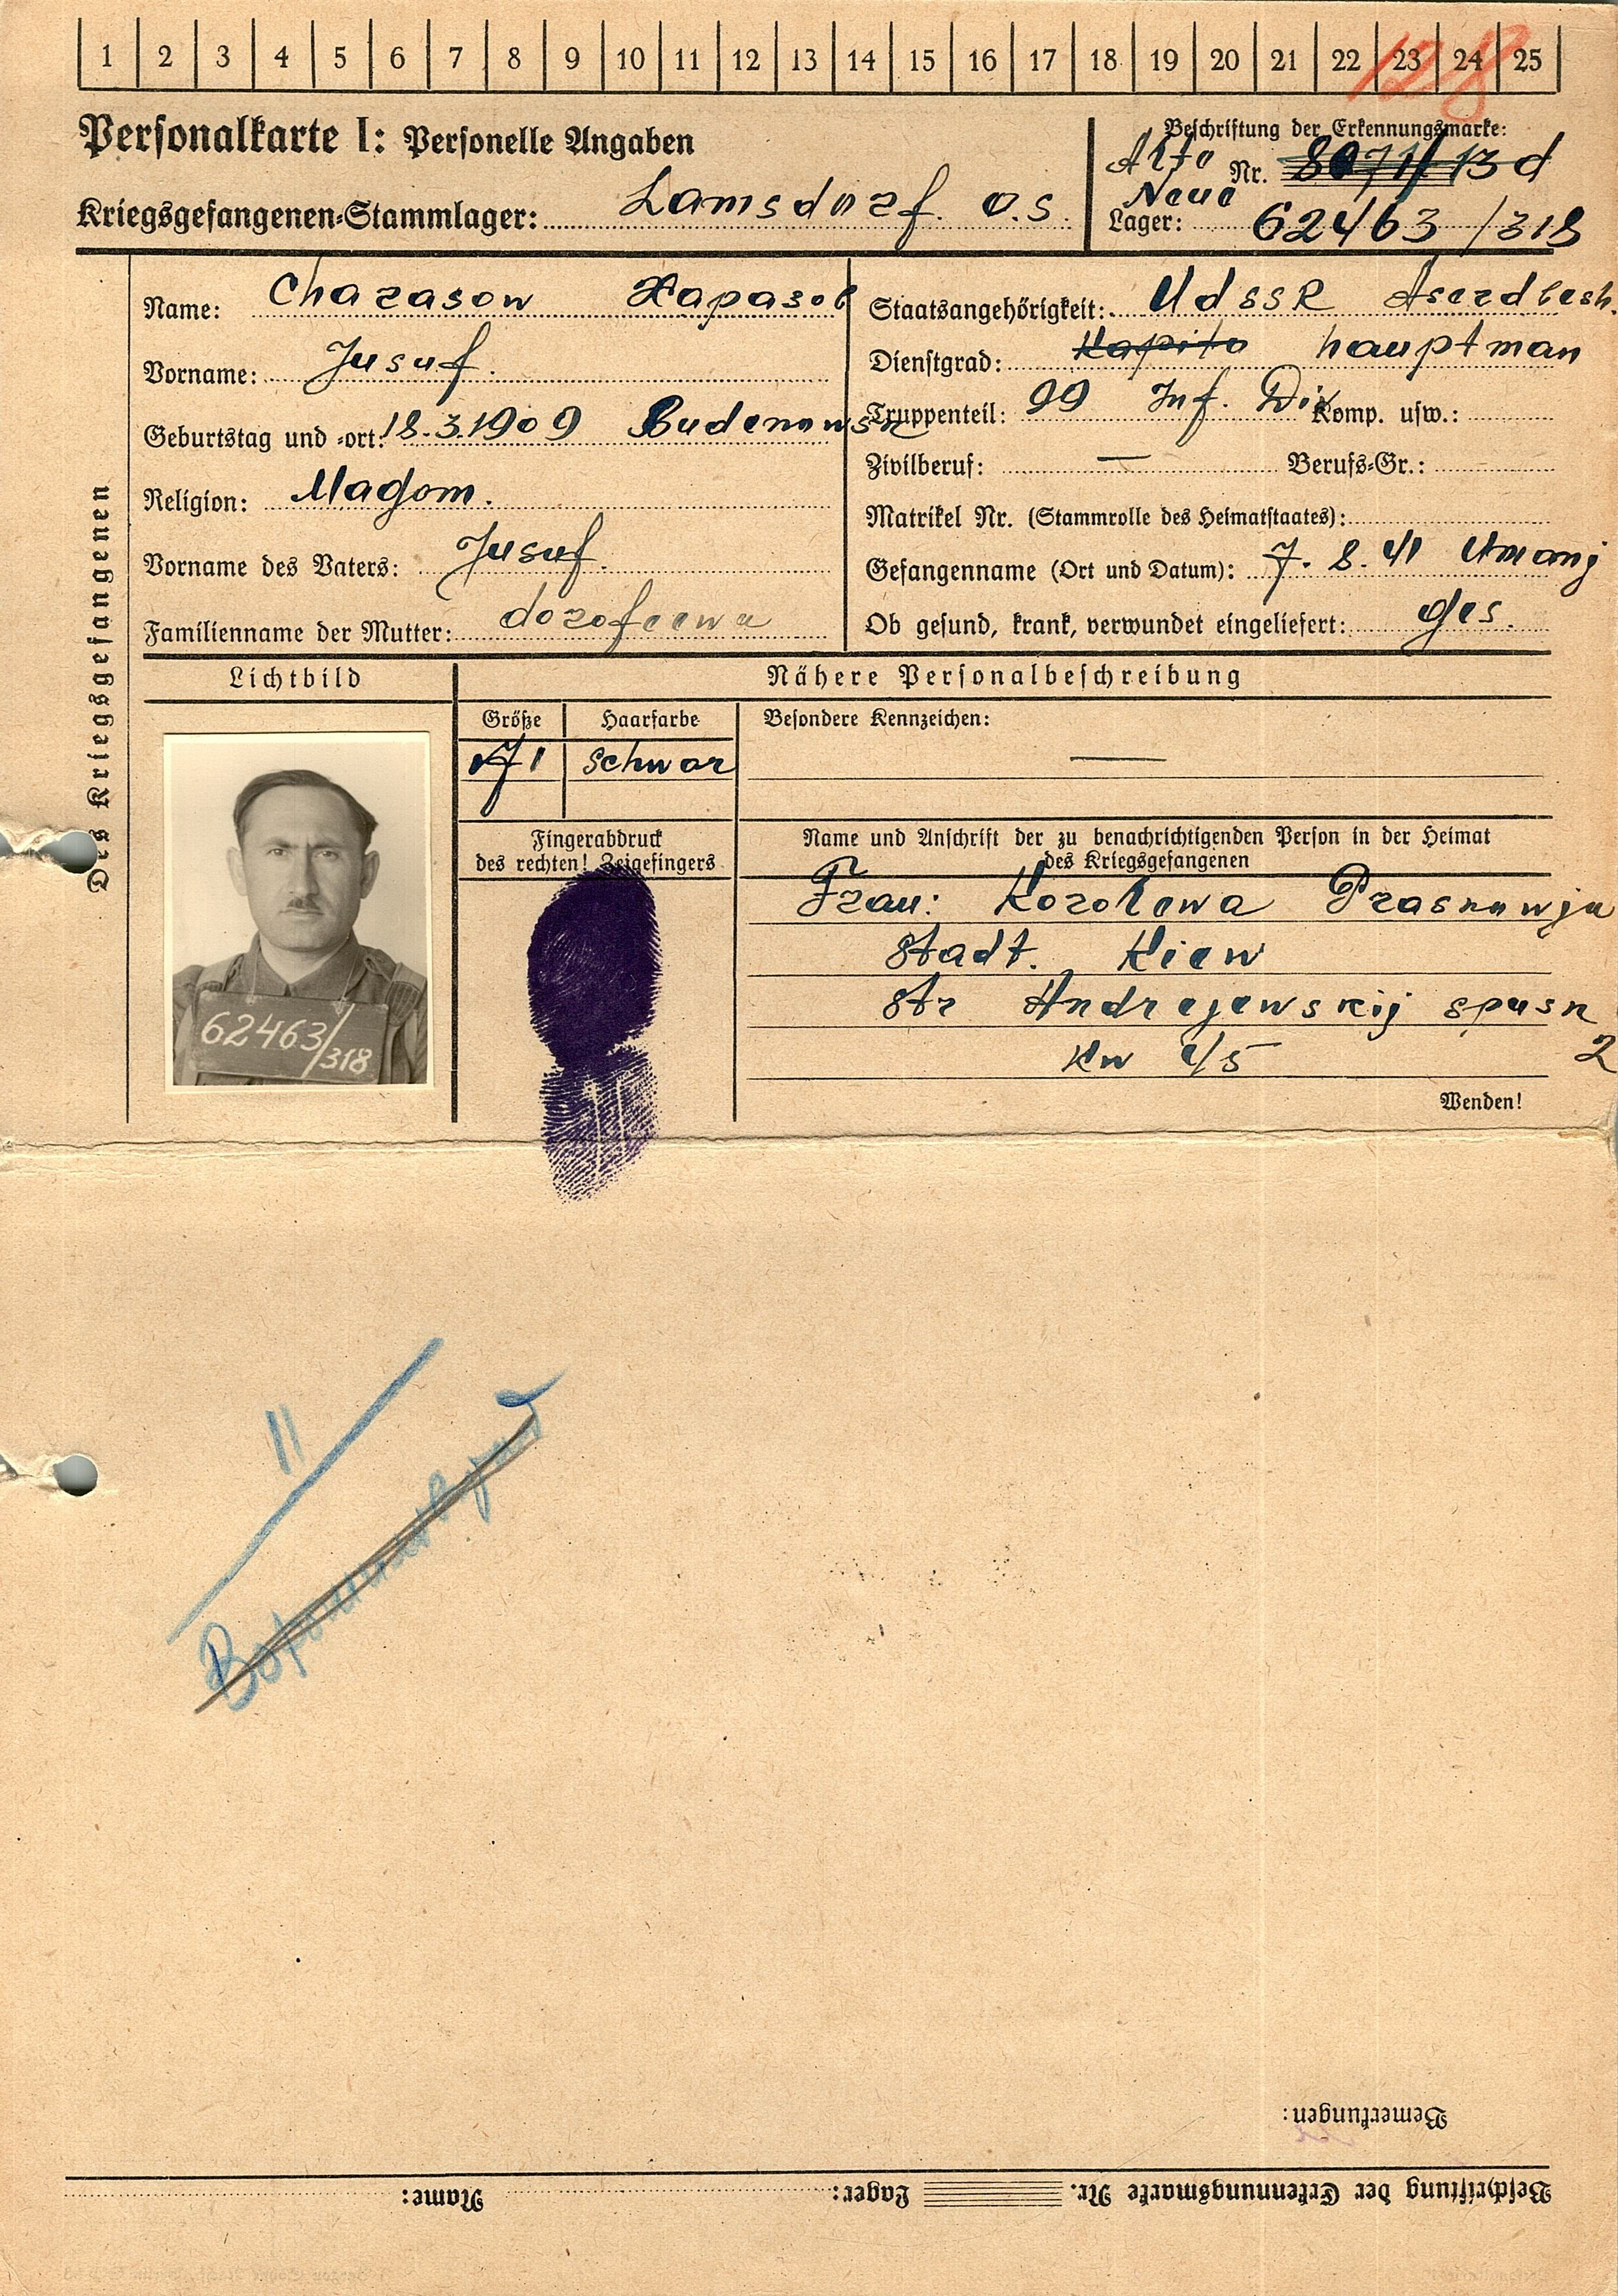 1 2 3 4 5 6 7 8 9 10 11 12 13 14 15 16 17 18 19 20 21 22 23 24 25
128
Personalkarte I: Personelle Angaben
Beschriftung der Erkennungsmarke:
Alte Nr. 8071/13 d
Neue
Kriegsgefangenen-Stammlager: Lamsdorf. O.S.
Lager: 62463/318
Des Kriegsgefangenen
Name: Chazasow Харазов
Vorname: Jusuf.
Geburtstag und -ort: 18.3.1909 Budenowsk
Religion: Magom.
Vorname des Vaters: Jusuf.
Familienname der Mutter: dozofeewa
Staatsangehörigkeit: UdSSR Aserdbesh.
Dienstgrad: Kapito hauptman
Truppenteil: 99 Inf. Div Komp. usw.:
Zivilberuf: — Berufs-Gr.:
Matrikel Nr. (Stammrolle des Heimatstaates):
Gefangenname (Ort und Datum): 7. 8. 41 Umanj
Ob gesund, krank, verwundet eingeliefert: ges.
Lichtbild
62463/318
Nähere Personalbeschreibung
Größe
171
Haarfarbe
schwar
Besondere Kennzeichen:
—
Fingerabdruck
des rechten! Zeigefingers
Name und Anschrift der zu benachrichtigenden Person in der Heimat
des Kriegsgefangenen
Frau: Kozolewa
Stadt. Kiew
Str Andrejewskij spusk
2
Kw
Wenden!
11
Bemerkungen:
Beschriftung der Erkennungsmarke Nr. Lager: Name: